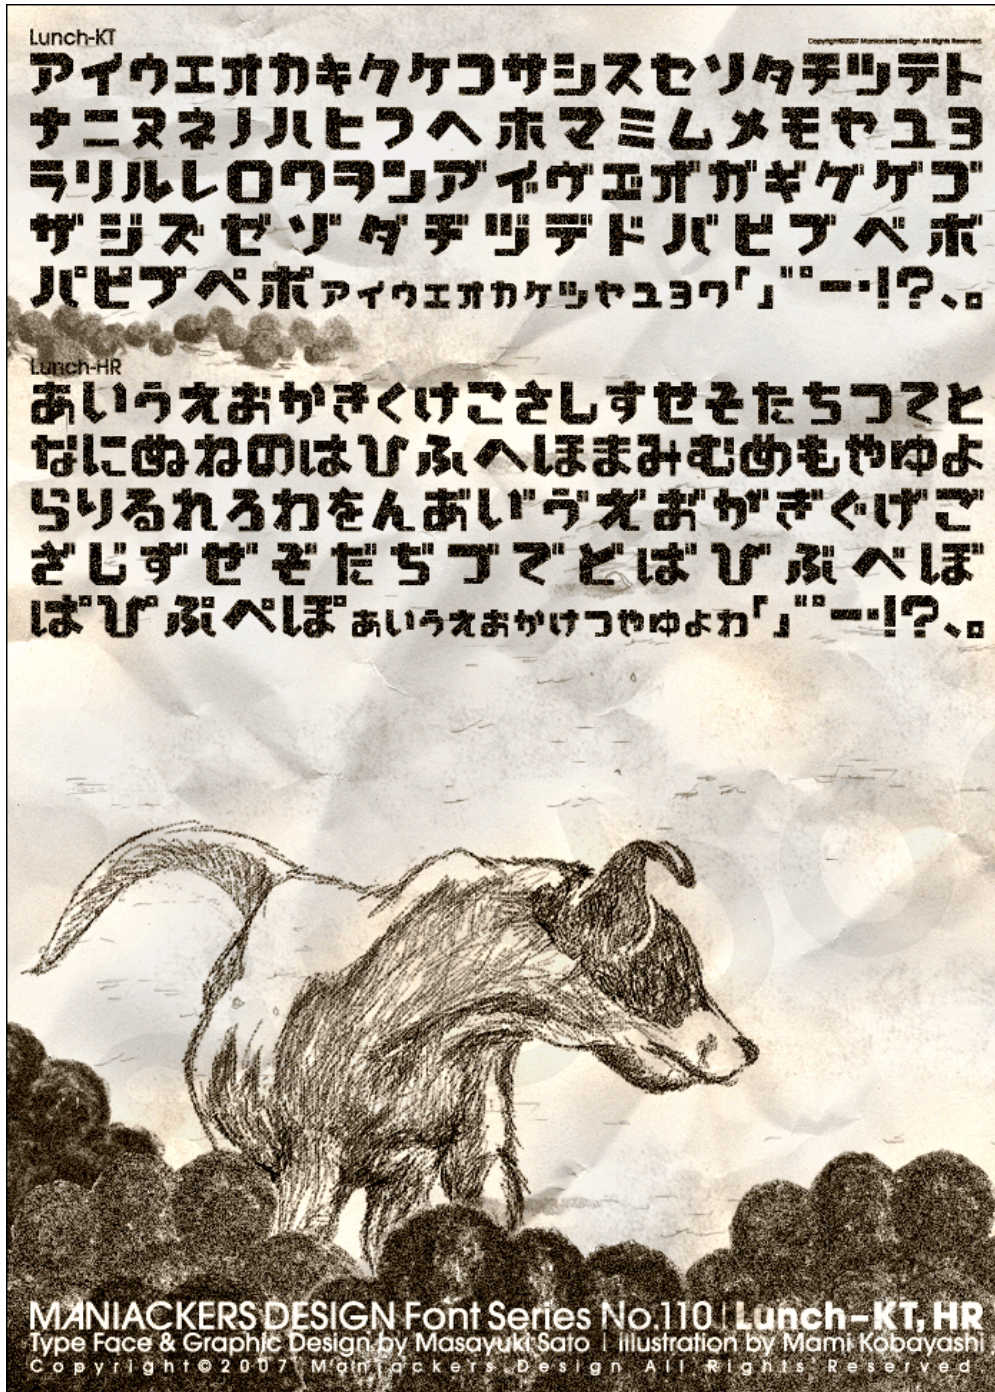 Lunch-KT
Copyright©2007 Maniackers Design All Rights Reserved.
アイウエオカキクケコサシスセソタチツテト
ナニヌネノハヒフヘホマミムメモヤユヨ
ラリルレロワヲンア゛イ゛ヴエ゛オ゛ガギグゲゴ
ザジズゼゾダヂヅデドバビブベボ
パピプペポァィゥェォヵヶッャュョヮ「」゛゜ー・!?、。
Lunch-HR
あいうえおかきくけこさしすせそたちつてと
なにぬねのはひふへほまみむめもやゆよ
らりるれろわをんあ゛い゛ゔえ゛お゛がぎぐげご
ざじずぜぞだぢづでどばびぶべぼ
ぱぴぷぺぽぁぃぅぇぉゕゖっゃゅょゎ「」゛゜ー・!?、。
MANIACKERS DESIGN Font Series No.110 | Lunch-KT, HR
Type Face & Graphic Design by Masayuki Sato | illustration by Mami Kobayashi
Copyright©2007 Maniackers Design All Rights Reserved.